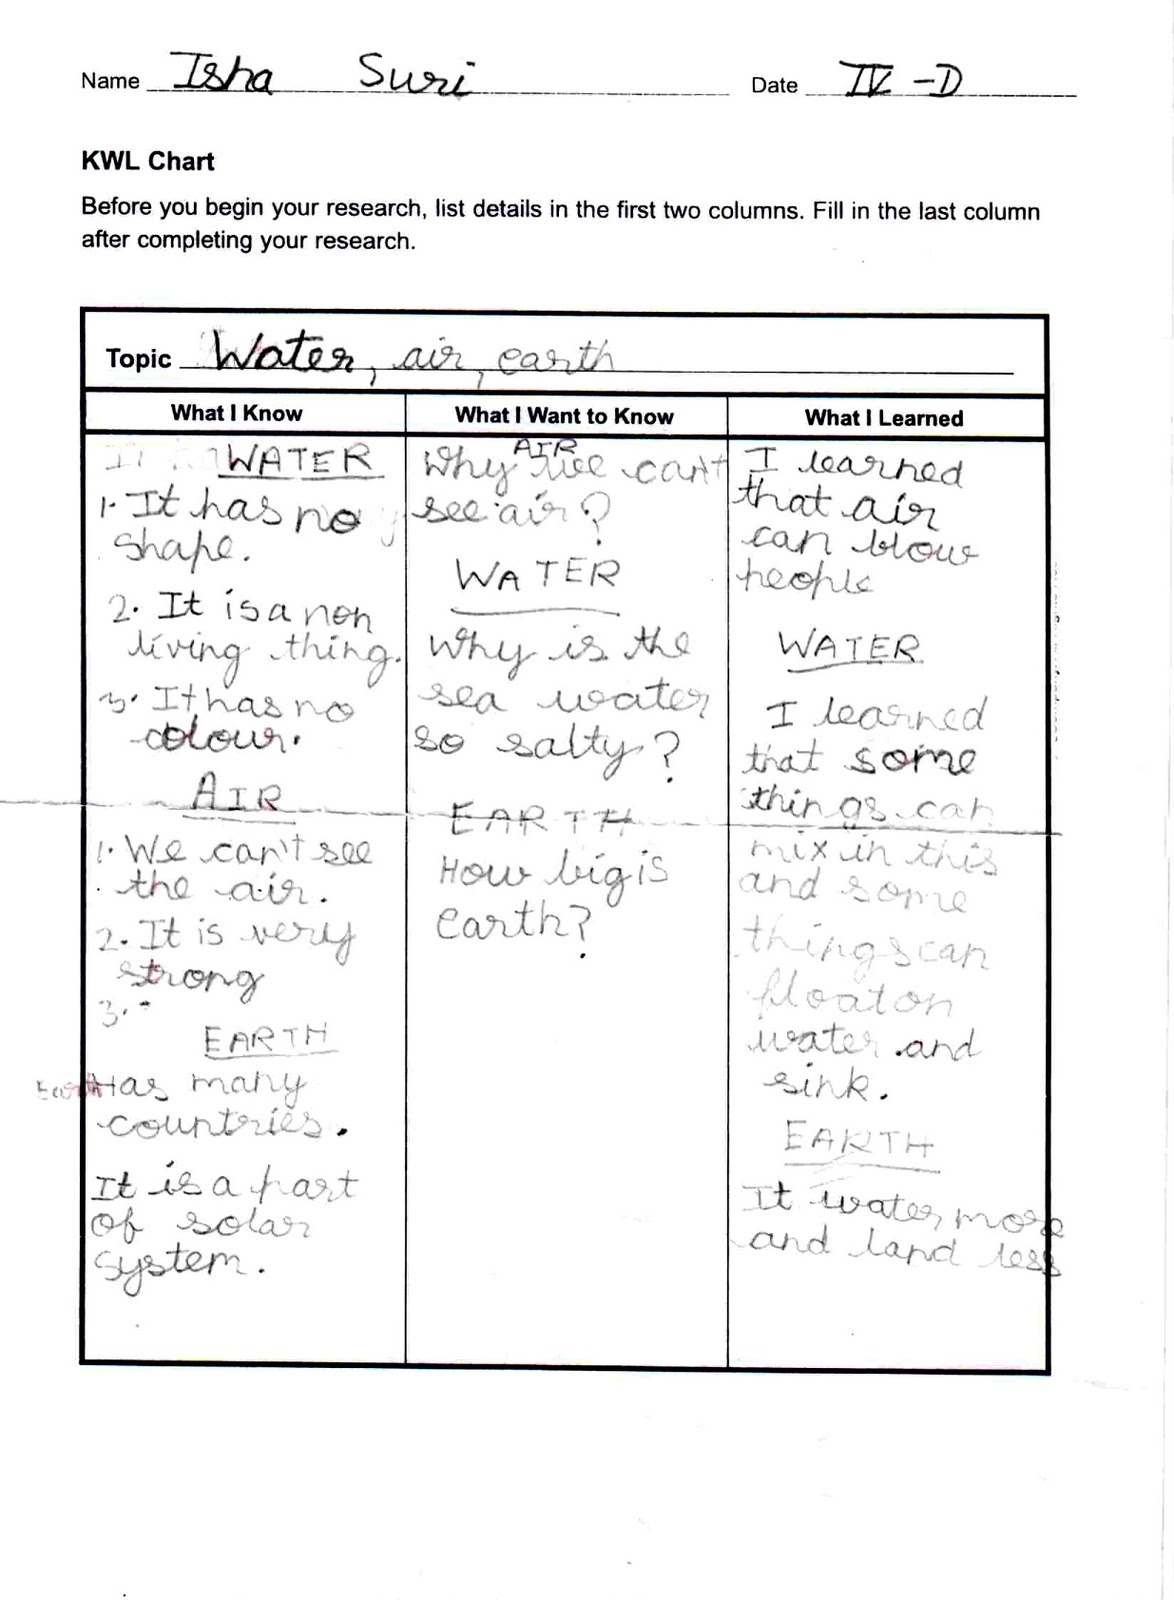 Name Isha Suri Date IV - D
KWL Chart
Before you begin your research, list details in the first two columns. Fill in the last column
after completing your research.
Topic Water, air, earth
What I Know
WATER
1. It has no
shape.
2. It is a non
living thing.
3. It has no
colour.
AIR
1. We can't see
the air.
2. It is very
strong
3.
EARTH
Earth Has many
countries.
It is a part
of solar
system.
What I Want to Know
AIR
Why we can't
see air?
WATER
Why is the
sea water
so salty?
EARTH
How big is
earth?
What I Learned
I learned
that air
can blow
people
WATER
I learned
that some
things can
mix in this
and some
things can
float on
water and
sink.
EARTH
It water more
and land less